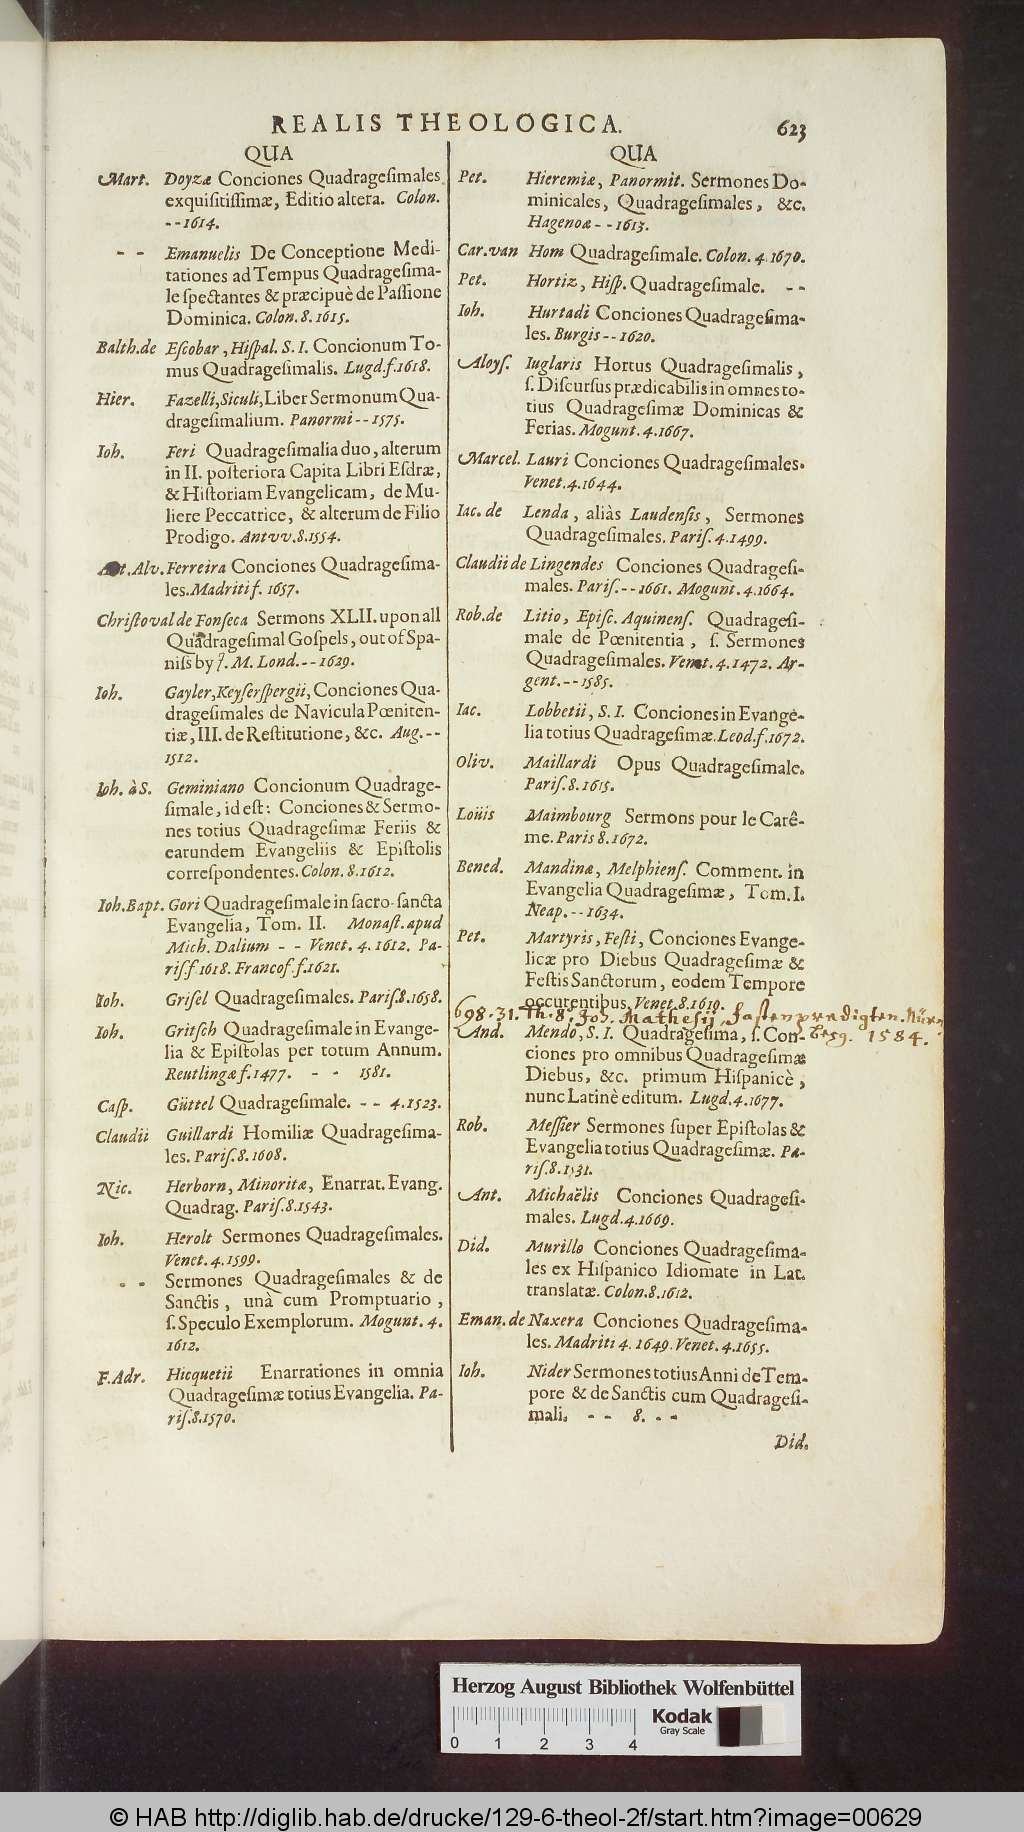 REALIS THEOLOGICA. 623
QUA
Mart. Doyzæ Conciones Quadragesimales
exquisitissimæ, Editio altera. Colon.
- - 1614.
- - Emanuelis De Conceptione Medi-
tationes ad Tempus Quadragesima-
le spectantes & præcipuè de Passione
Dominica. Colon. 8. 1615.
Balth. de Escobar, Hispal. S. I. Concionum To-
mus Quadragesimalis. Lugd. f. 1618.
Hier. Fazelli, Siculi, Liber Sermonum Qua-
dragesimalium. Panormi - - 1575.
Ioh. Feri Quadragesimalia duo, alterum
in II. posteriora Capita Libri Esdræ,
& Historiam Evangelicam, de Mu-
liere Peccatrice, & alterum de Filio
Prodigo. Antvv. 8. 1554.
Alv. Ferreira Conciones Quadragesima-
les. Madriti f. 1657.
Christoval de Fonseca Sermons XLII. upon all
Quadragesimal Gospels, out of Spa-
niss by J. M. Lond. - - 1629.
Ioh. Gayler, Keyserspergii, Conciones Qua-
dragesimales de Navicula Pœniten-
tiæ, III. de Restitutione, &c. Aug. - -
1512.
Ioh. à S. Geminiano Concionum Quadrage-
simale, id est: Conciones & Sermo-
nes totius Quadragesimæ Feriis &
earundem Evangeliis & Epistolis
correspondentes. Colon. 8. 1612.
Ioh. Bapt. Gori Quadragesimale in sacro-sancta
Evangelia, Tom. II. Monast. apud
Mich. Dalium - - Venet. 4. 1612. Pa-
ris. f 1618. Francof. f. 1621.
Ioh. Grisel Quadragesimales. Paris. 8. 1658.
Ioh. Gritsch Quadragesimale in Evange-
lia & Epistolas per totum Annum.
Reutlingæ f. 1477. - - 1581.
Casp. Güttel Quadragesimale. - - 4. 1523.
Claudii Guillardi Homiliæ Quadragesima-
les. Paris. 8. 1608.
Nic. Herborn, Minoritæ, Enarrat. Evang.
Quadrag. Paris. 8. 1543.
Ioh. Herolt Sermones Quadragesimales.
Venet. 4. 1599.
- - Sermones Quadragesimales & de
Sanctis, unà cum Promptuario,
s. Speculo Exemplorum. Mogunt. 4.
1612.
F. Adr. Hicquetii Enarrationes in omnia
Quadragesimæ totius Evangelia. Pa-
ris. 8. 1570.
QUA
Pet. Hieremiæ, Panormit. Sermones Do-
minicales, Quadragesimales, &c.
Hagenoæ - - 1613.
Car. van Hom Quadragesimale. Colon. 4. 1670.
Pet. Hortiz, Hisp. Quadragesimale. - -
Ioh. Hurtadi Conciones Quadragesima-
les. Burgis - - 1620.
Aloys. Iuglaris Hortus Quadragesimalis,
s. Discursus prædicabilis in omnes to-
tius Quadragesimæ Dominicas &
Ferias. Mogunt. 4. 1667.
Marcel. Lauri Conciones Quadragesimales.
Venet. 4. 1644.
Iac. de Lenda, aliàs Laudensis, Sermones
Quadragesimales. Paris. 4. 1499.
Claudii de Lingendes Conciones Quadragesi-
males. Paris. - - 1661. Mogunt. 4. 1664.
Rob. de Litio, Episc. Aquinens. Quadragesi-
male de Pœnitentia, s. Sermones
Quadragesimales. Venet. 4. 1472. Ar-
gent. - - 1585.
Iac. Lobbetii, S. I. Conciones in Evange-
lia totius Quadragesimæ. Leod. f. 1672.
Oliv. Maillardi Opus Quadragesimale.
Paris. 8. 1615.
Loüis Maimbourg Sermons pour le Carê-
me. Paris 8. 1672.
Bened. Mandinæ, Melphiens. Comment. in
Evangelia Quadragesimæ, Tom. I.
Neap. - - 1634.
Pet. Martyris, Festi, Conciones Evange-
licæ pro Diebus Quadragesimæ &
Festis Sanctorum, eodem Tempore
occurentibus. Venet. 8. 1619.
698.31. Th. 8. Joh. Mathesij fastenpredigten. Nürn
berg. 1584.
And. Mendo, S. I. Quadragesima, s. Con-
ciones pro omnibus Quadragesimæ
Diebus, &c. primum Hispanicè,
nunc Latinè editum. Lugd. 4. 1677.
Rob. Messier Sermones super Epistolas &
Evangelia totius Quadragesimæ. Pa-
ris. 8. 1531.
Ant. Michaëlis Conciones Quadragesi-
males. Lugd. 4. 1669.
Did. Murillo Conciones Quadragesima-
les ex Hispanico Idiomate in Lat.
translatæ. Colon. 8. 1612.
Eman. de Naxera Conciones Quadragesima-
les. Madriti 4. 1649. Venet. 4. 1655.
Ioh. Nider Sermones totius Anni de Tem-
pore & de Sanctis cum Quadragesi-
mali. - - 8. - -
Did.
Herzog August Bibliothek Wolfenbüttel
Kodak
Gray Scale
0 1 2 3 4
© HAB http://diglib.hab.de/drucke/129-6-theol-2f/start.htm?image=00629